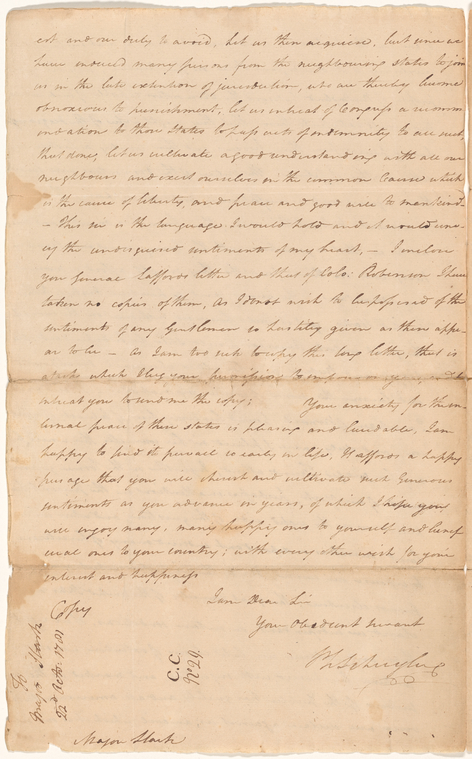 est and our duty to avoid, Let us then acquiesce, but since we
have induced many persons from the neighbouring states to join
us in the late extention of jurisdiction, who are thereby become
obnoxious to punishment, let us intreat of Congress a recomm
endation to those States to pass acts of indemnity to all such,
that done, let us cultivate a good understanding with all our
neighbours and exert ourselves in the common Cause which
is the cause of liberty, and peace and good will to mankind.
– This sir is the language I would hold and it would con-
vey the undisguised sentiments of my heart, – I inclose
you General Saffords letter and that of Colo: Robenson I have
taken no copies of them, as I do not wish to be possessed of the
sentiments of any Gentlemen so hastily given as these appe
ar to be – as I am too sick to copy this long letter, that is
a task which I beg your permission to impose on you, and
intreat you to send me the copy; Your anxiety for the in
ternal peace of these states is pleasing and laudable, I am
happy to find it prevail so early in life, It affords a happy
presage that you will cherish and cultivate such Generous
sentiments as you advance in years, of which I hope you
will enjoy many, many happy ones to yourself and benef
icial ones to your country; with every other wish for your
interest and happiness
I am Dear Sir
Your Obedient Servant
Ph: Schuyler
Copy
To
Major Stark
22d Octr. 1781
C. C.
No 24.
Major Stark